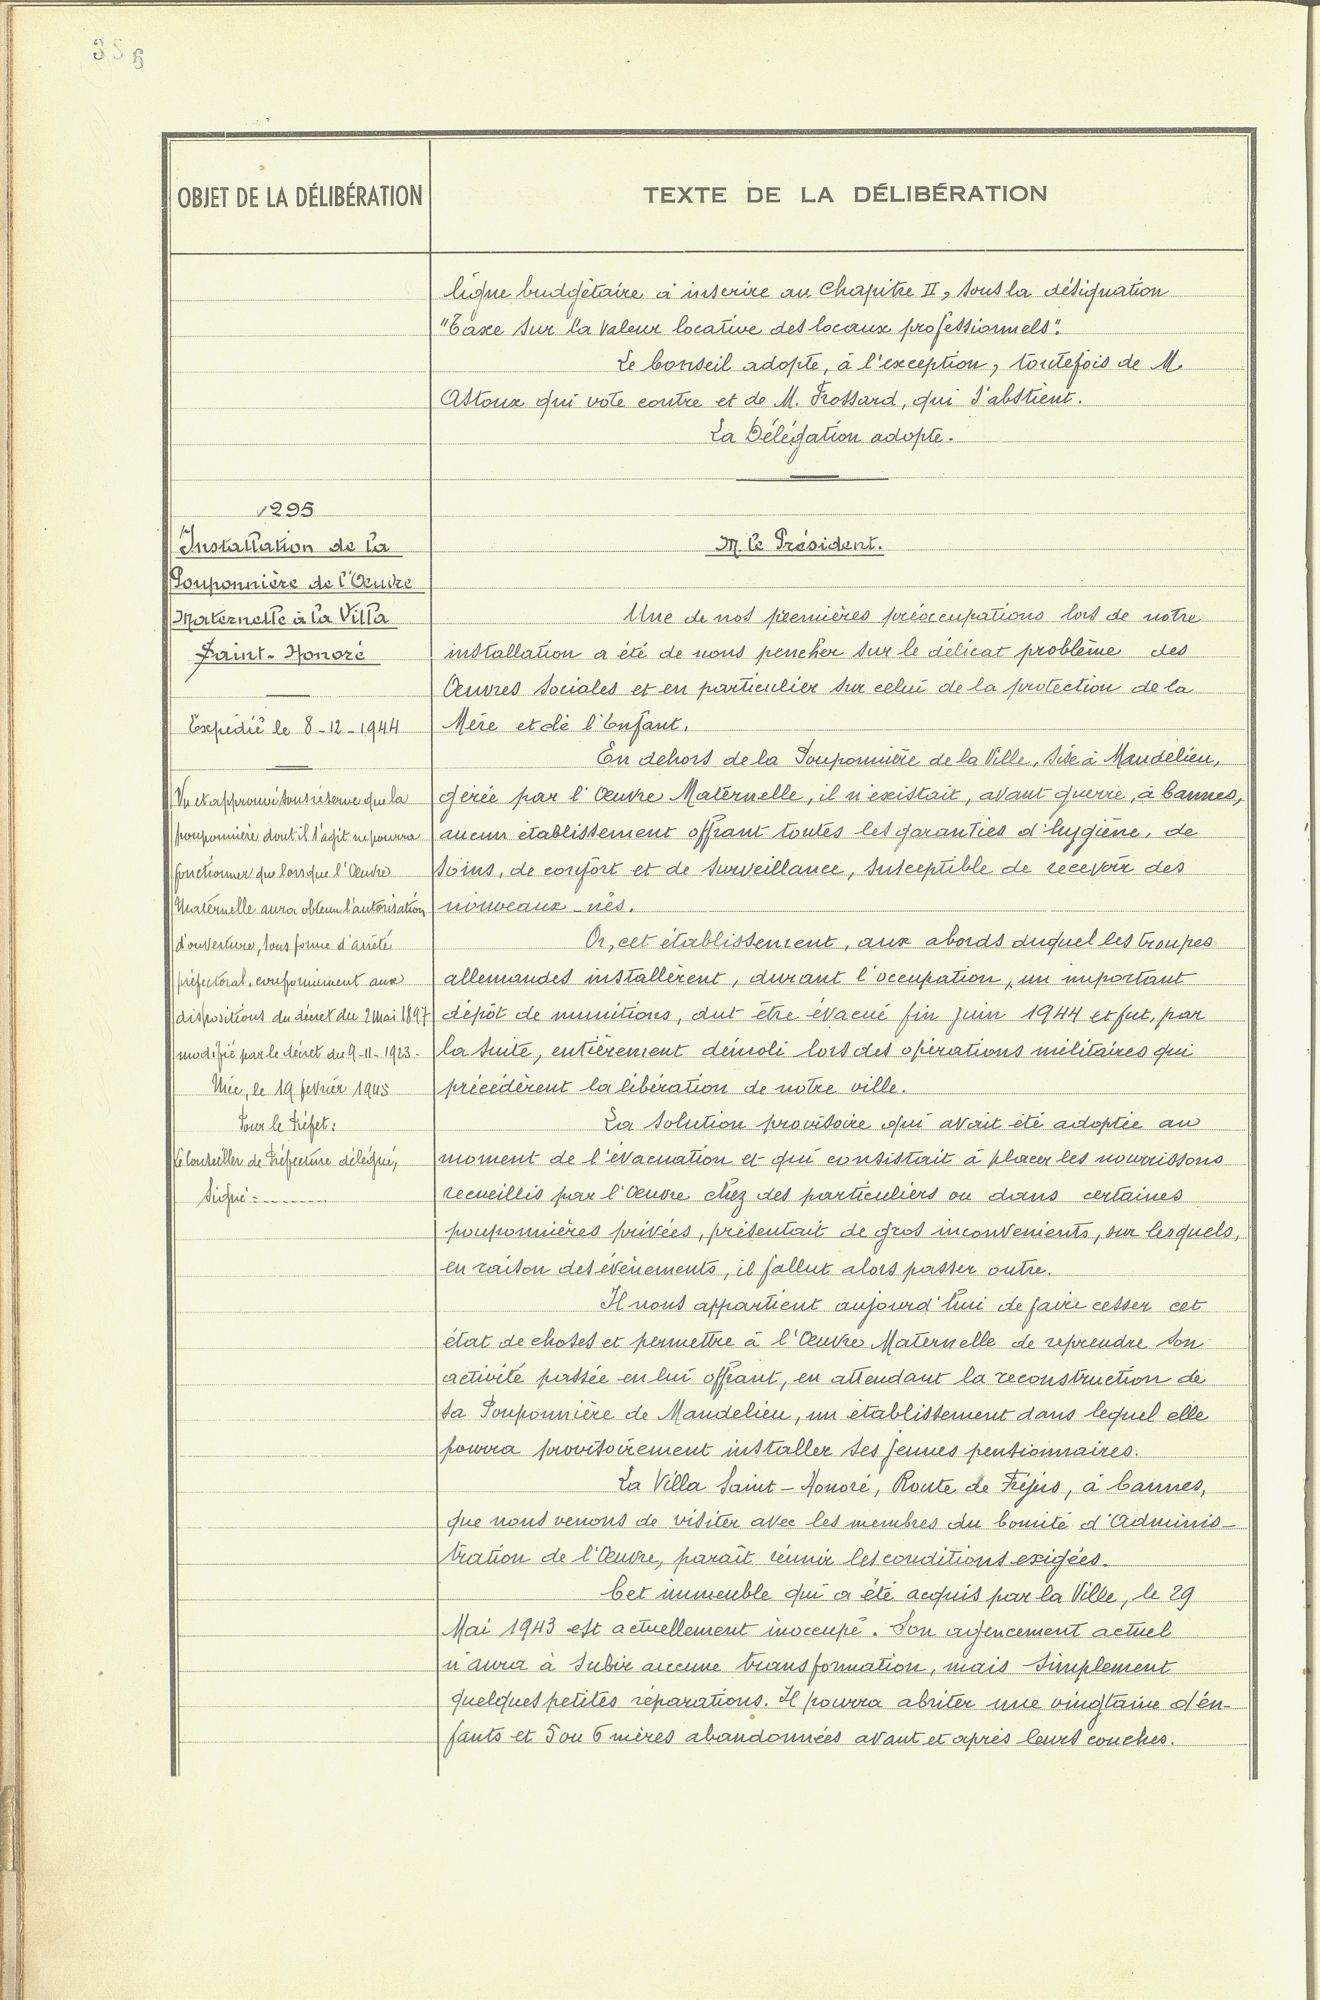 386
OBJET DE LA DÉLIBÉRATION
TEXTE DE LA DÉLIBÉRATION
ligne budgétaire à inscrire au Chapitre II, sous la désignation
"Taxe sur la valeur locative des locaux professionnels".
Le Conseil adopte, à l'exception, toutefois de M.
Astoux qui vote contre et de M. Frossard, qui s'abstient.
La Délégation adopte.
1295
Installation de la
Pouponnière de l'Œuvre
Maternelle à la Villa
Saint-Honoré
Expédié le 8-12-1944
Vu et approuvé sous réserve que la
pouponnière dont il s'agit ne pourra
fonctionner que lorsque l'Œuvre
Maternelle aura obtenu l'autorisation
d'ouverture, sous forme d'arrêté
préfectoral, conformément aux
dispositions du décret du 2 mai 1897
modifié par le décret du 9-11-1923.
Nice, le 19 février 1945
Pour le Préfet:
Le Conseiller de Préfecture délégué,
Signé:........
M. le Président.
Une de nos premières préoccupations lors de notre
installation a été de nous pencher sur le délicat problème des
Œuvres Sociales et en particulier sur celui de la protection de la
Mère et de l'Enfant.
En dehors de la Pouponnière de la Ville, sise à Mandelieu,
gérée par l'Œuvre Maternelle, il n'existait, avant guerre, à Cannes,
aucun établissement offrant toutes les garanties d'hygiène, de
soins, de confort et de surveillance, susceptible de recevoir des
nouveaux-nés.
Or, cet établissement, aux abords duquel les troupes
allemandes installèrent, durant l'occupation, un important
dépôt de munitions, dut être évacué fin juin 1944 et fut, par
la suite, entièrement démoli lors des opérations militaires qui
précédèrent la libération de notre ville.
La solution provisoire qui avait été adoptée au
moment de l'évacuation et qui consistait à placer les nourrissons
recueillis par l'Œuvre chez des particuliers ou dans certaines
pouponnières privées, présentait de gros inconvenients, sur lesquels,
en raison des événements, il fallut alors passer outre.
Il nous appartient aujourd'hui de faire cesser cet
état de choses et permettre à l'Œuvre Maternelle de reprendre son
activité passée en lui offrant, en attendant la reconstruction de
sa Pouponnière de Mandelieu, un établissement dans lequel elle
pourra provisoirement installer ses jeunes pensionnaires.
La Villa Saint-Honoré, Route de Fréjus, à Cannes,
que nous venons de visiter avec les membres du Comité d'Adminis-
tration de l'Œuvre, paraît réunir les conditions exigées.
Cet immeuble qui a été acquis par la Ville, le 29
Mai 1943 est actuellement inoccupé. Son agencement actuel
n'aura à subir aucune transformation, mais simplement
quelques petites réparations. Il pourra abriter une vingtaine d'en-
fants et 5 ou 6 mères abandonnées avant et après leurs couches.